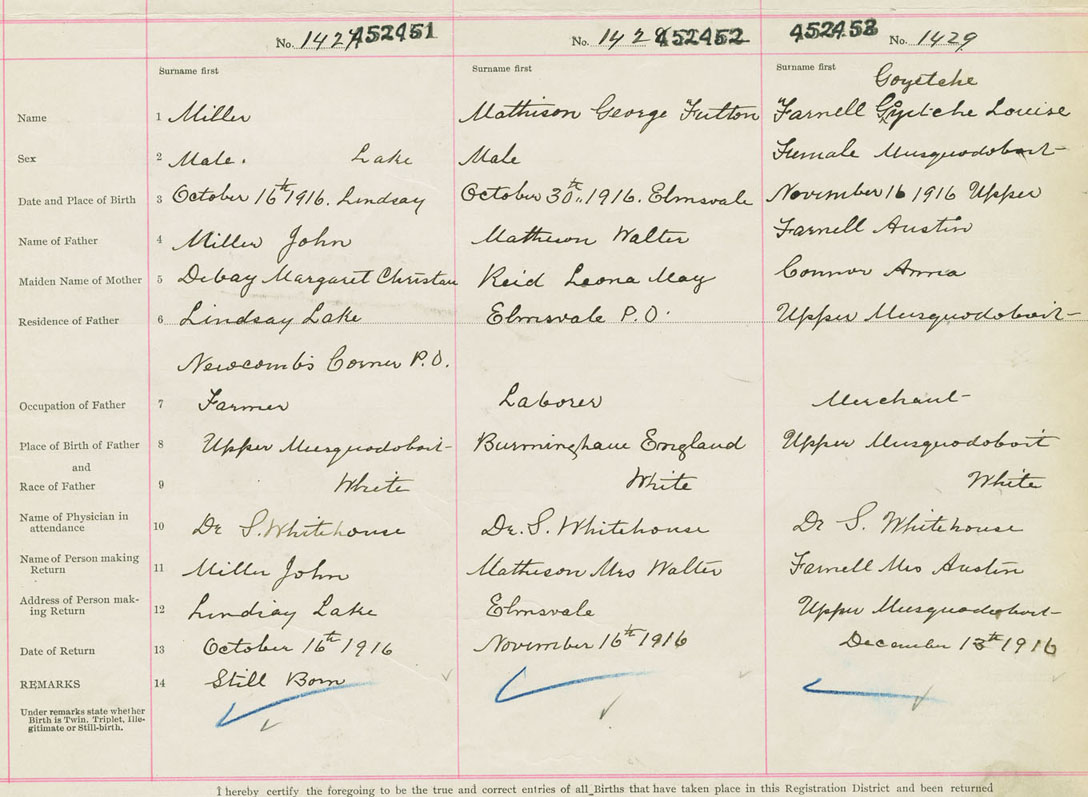 No. 1427 452451 No. 1428 452452 452453 No. 1429
Surname first Surname first Surname first
Goyetche
Name 1 Miller Mathison George Futton Farnell Gyetche Louise
Sex 2 Male. Lake Male Female Musquodoboit
Date and Place of Birth 3 October 16th 1916. Lindsay October 30th 1916. Elmsvale November 16 1916 Upper
Name of Father 4 Miller John Matheson Walter Farnell Austin
Maiden Name of Mother 5 Debay Margaret Christau Reid Leona May Connor Anna
Residence of Father 6 Lindsay Lake Elmsvale P.O. Upper Musquodoboit
Newcomb's Corner P.O.
Occupation of Father 7 Farmer Laborer Merchant
Place of Birth of Father 8 Upper Musquodoboit Burmingham England Upper Musquodoboit
and
Race of Father 9 White White White
Name of Physician in
attendance 10 Dr S. Whitehouse Dr. S. Whitehouse Dr S. Whitehouse
Name of Person making
Return 11 Miller John Matheson Mrs Walter Farnell Mrs Austin
Address of Person mak-
ing Return 12 Lindsay Lake Elmsvale Upper Musquodoboit
Date of Return 13 October 16th 1916 November 16th 1916 December 13th 1916
REMARKS 14 Still Born
Under remarks state whether
Birth is Twin, Triplet, Ille-
gitimate or Still-birth.
I hereby certify the foregoing to be the true and correct entries of all Births that have taken place in this Registration District and been returned